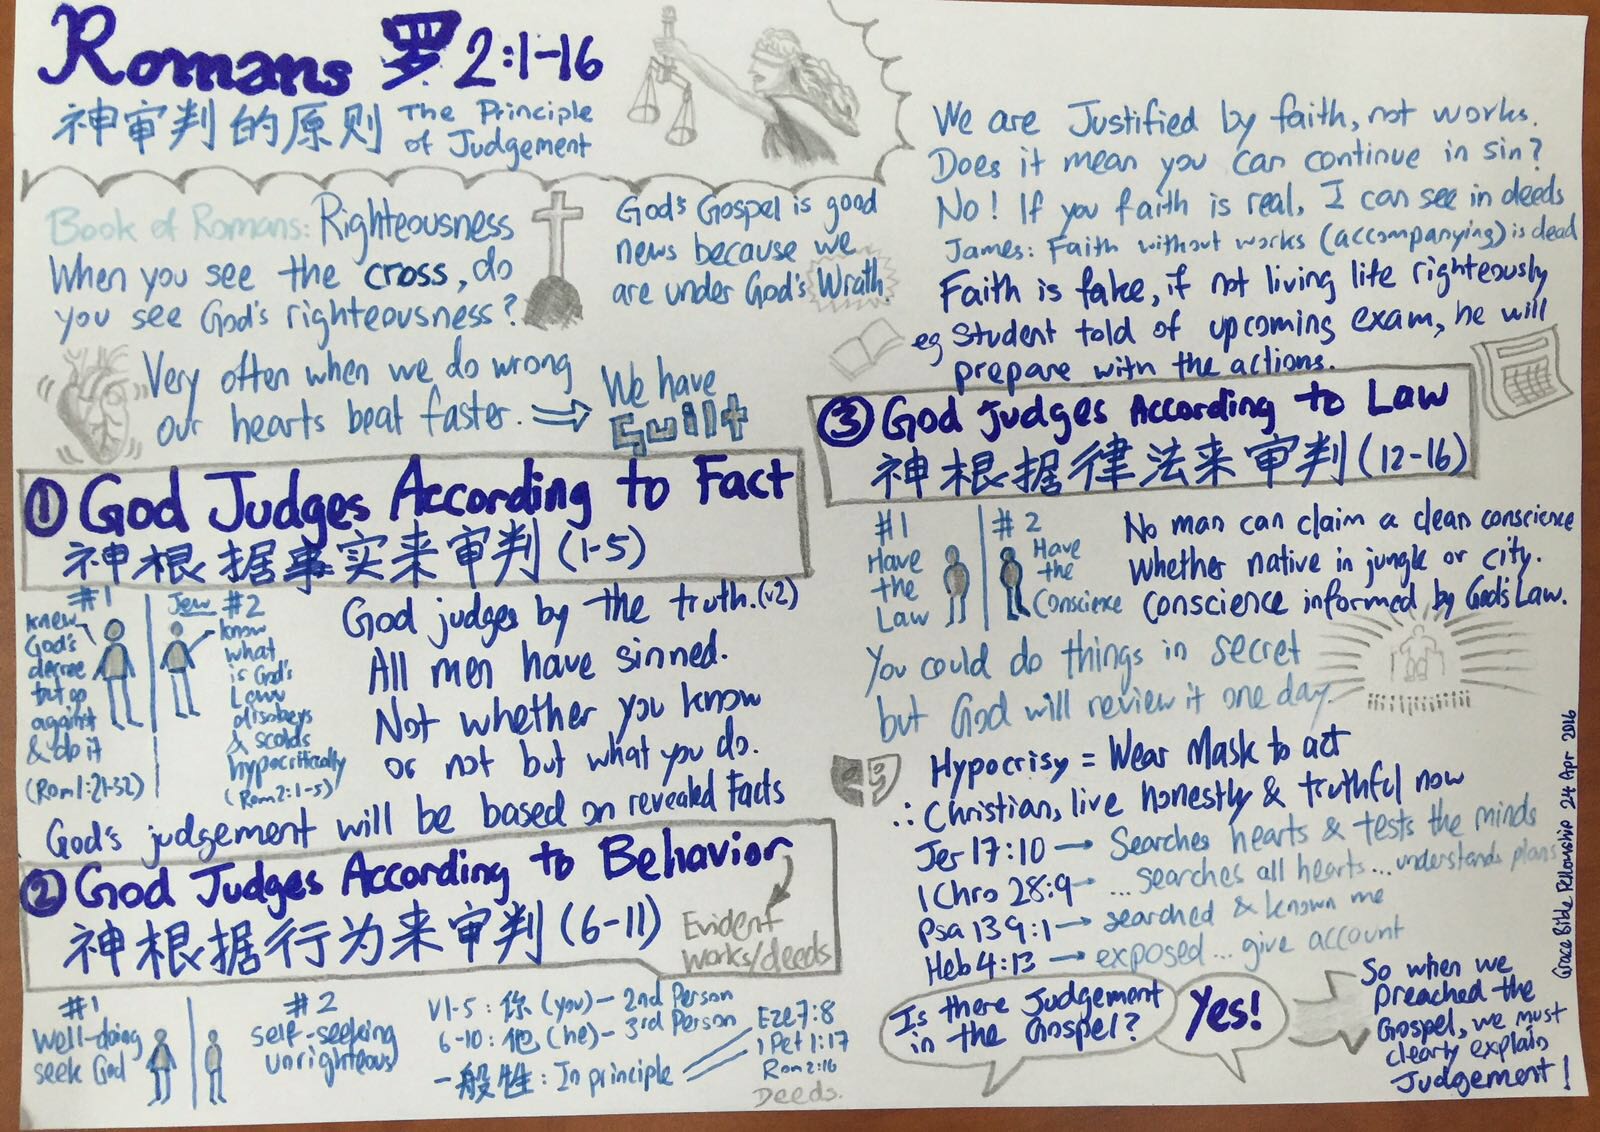 Romans 罗 2:1-16
神审判的原则 The Principle
of Judgement
Book of Romans: Righteousness
When you see the cross, do
you see God's righteousness?
God's Gospel is good
news because we
are under God's Wrath.
Very often when we do wrong
our hearts beat faster. ⇒ We have
Guilt
① God Judges According to Fact
神根据事实来审判 (1-5)
#1
knew
God's
decree
but go
against
& do it
(Rom 1:21-32)
Jew #2
know
what
is God's
Law
disobeys
& scolds
hypocritically
(Rom 2:1-5)
God judges by the truth. (v2)
All men have sinned.
Not whether you know
or not but what you do.
God's judgement will be based on revealed Facts
② God Judges According to Behavior
神根据行为来审判 (6-11)
Evident
works/deeds
#1
well-doing
seek God
#2
self-seeking
unrighteous
V1-5: 你 (you) - 2nd Person
6-10: 他 (he) - 3rd Person
一般性: In principle
Eze 7:8
1 Pet 1:17
Rom 2:16
Deeds.
We are Justified by faith, not works.
Does it mean you can continue in sin?
No! If you faith is real, I can see in deeds
James: Faith without works (accompanying) is dead
Faith is fake, if not living life righteously
eg Student told of upcoming exam, he will
prepare with the actions.
③ God Judges According to Law
神根据律法来审判 (12-16)
#1
Have
the
Law
#2
Have
the
Conscience
No man can claim a clean conscience
whether native in jungle or city.
conscience informed by God's Law.
You could do things in secret
but God will review it one day.
Hypocrisy = Wear Mask to act
∴ Christian, live honestly & truthful now
Jer 17:10 → Searches hearts & tests the minds
1 Chro 28:9 → ... searches all hearts... understands plans
Psa 139:1 → searched & known me
Heb 4:13 → exposed... give account
Is there Judgement
in the Gospel?
Yes!
So when we
preached the
Gospel, we must
clearly explain
Judgement!
Grace Bible Fellowship 24 Apr 2016